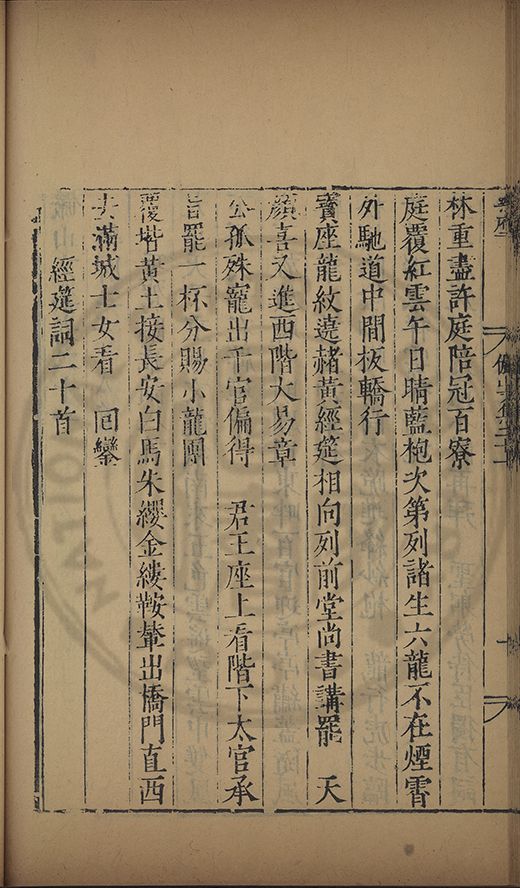 林重盡許庭陪冠百寮
庭覆紅雲午日晴藍袍次第列諸生六龍不在煙霄
外馳道中間板轎行
寶座龍紋遶赭黃經筵相向列前堂尚書講罷 天
顏喜又進西階大易章
公孤殊寵出千官偏得 君王座上看階下太官承
旨罷一杯分賜小龍團
覆堦黃土接長安白馬朱纓金縷鞍輦出橋門直西
去滿城士女看 回鑾
經筵詞二十首